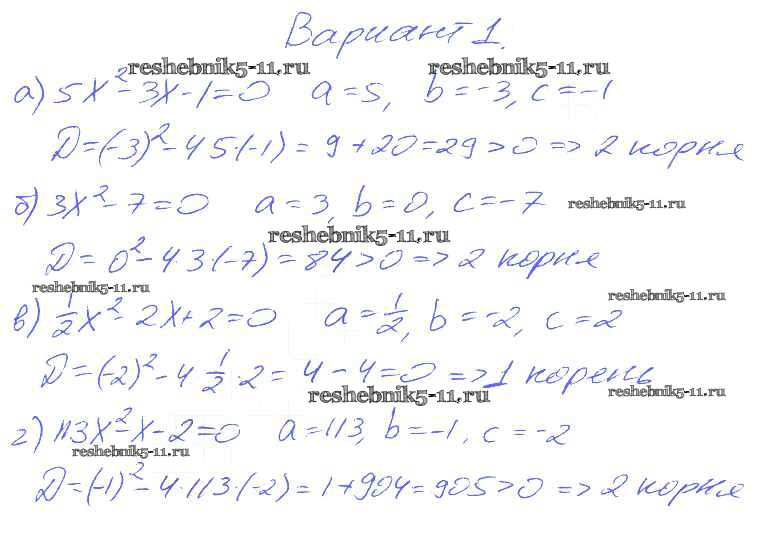 Вариант 1.
reshebnik5-11.ru reshebnik5-11.ru
а) 5x² - 3x - 1 = 0 a = 5, b = -3, c = -1
D = (-3)² - 4 5·(-1) = 9 + 20 = 29 > 0 => 2 корня
б) 3x² - 7 = 0 a = 3, b = 0, c = -7 reshebnik5-11.ru
reshebnik5-11.ru
D = 0² - 4·3(-7) = 84 > 0 => 2 корня
reshebnik5-11.ru reshebnik5-11.ru
в) 1/2 x² - 2x + 2 = 0 a = 1/2, b = -2, c = 2
D = (-2)² - 4 1/2 · 2 = 4 - 4 = 0 => 1 корень
reshebnik5-11.ru reshebnik5-11.ru
г) 113x² - x - 2 = 0 a = 113, b = -1, c = -2
reshebnik5-11.ru
D = (-1)² - 4·113·(-2) = 1 + 904 = 905 > 0 => 2 корня